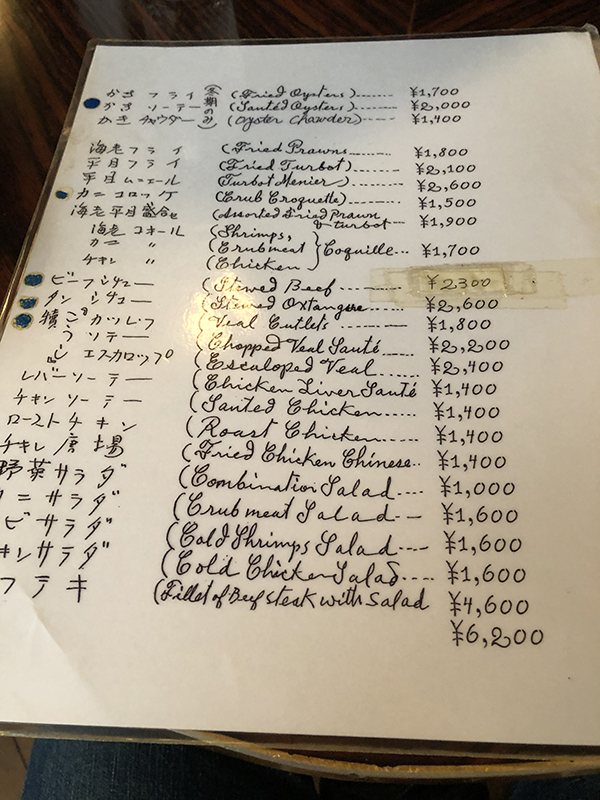 かき フライ (冬期のみ) (Fried Oysters)------ ¥1,700
かき ソーテー (Sauted Oysters)------ ¥2,000
かき チャウダー (Oyster Chawder)---- ¥1,400
海老 フライ (Fried Prawns-------- ¥1,800
平目 フライ (Fried Turbot)------- ¥2,100
平目 ムニエール (Turbot Menier)------- ¥2,600
カニ コロッケ (Crub Croquette)------ ¥1,500
海老平目盛合せ (Assorted Fried Prawn & turbot--- ¥1,900
海老 コキール (Shrimps,
カニ 〃 (Crubmeat } Coquille--- ¥1,700
チキン 〃 (Chicken)
ビーフシチュー (Stewed Beef ------ ¥2300
タン シチュー (Stewed Oxtangue---- ¥2,600
犢 カツレツ (Veal Cutlets ------- ¥1,800
〃 ソテー (Chopped Veal Sauté ---- ¥2,200
〃 エスカロップ (Escaloped Veal ----- ¥2,400
レバーソーテー (Chicken Liver Sauté ¥1,400
チキン ソーテー (Sauted Chicken----- ¥1,400
ローストチキン (Roast Chicken----- ¥1,400
チキン 唐揚 (Fried Chicken Chinese-- ¥1,400
野菜サラダ (Combination Salad---- ¥1,000
ニサラダ (Crubmeat Salad--- ¥1,600
ビサラダ (Cold Shrimps Salad---- ¥1,600
キンサラダ (Cold Chicken Salad---- ¥1,600
フテキ (Fillet of Beefsteak with Salad ¥4,600
¥6,200